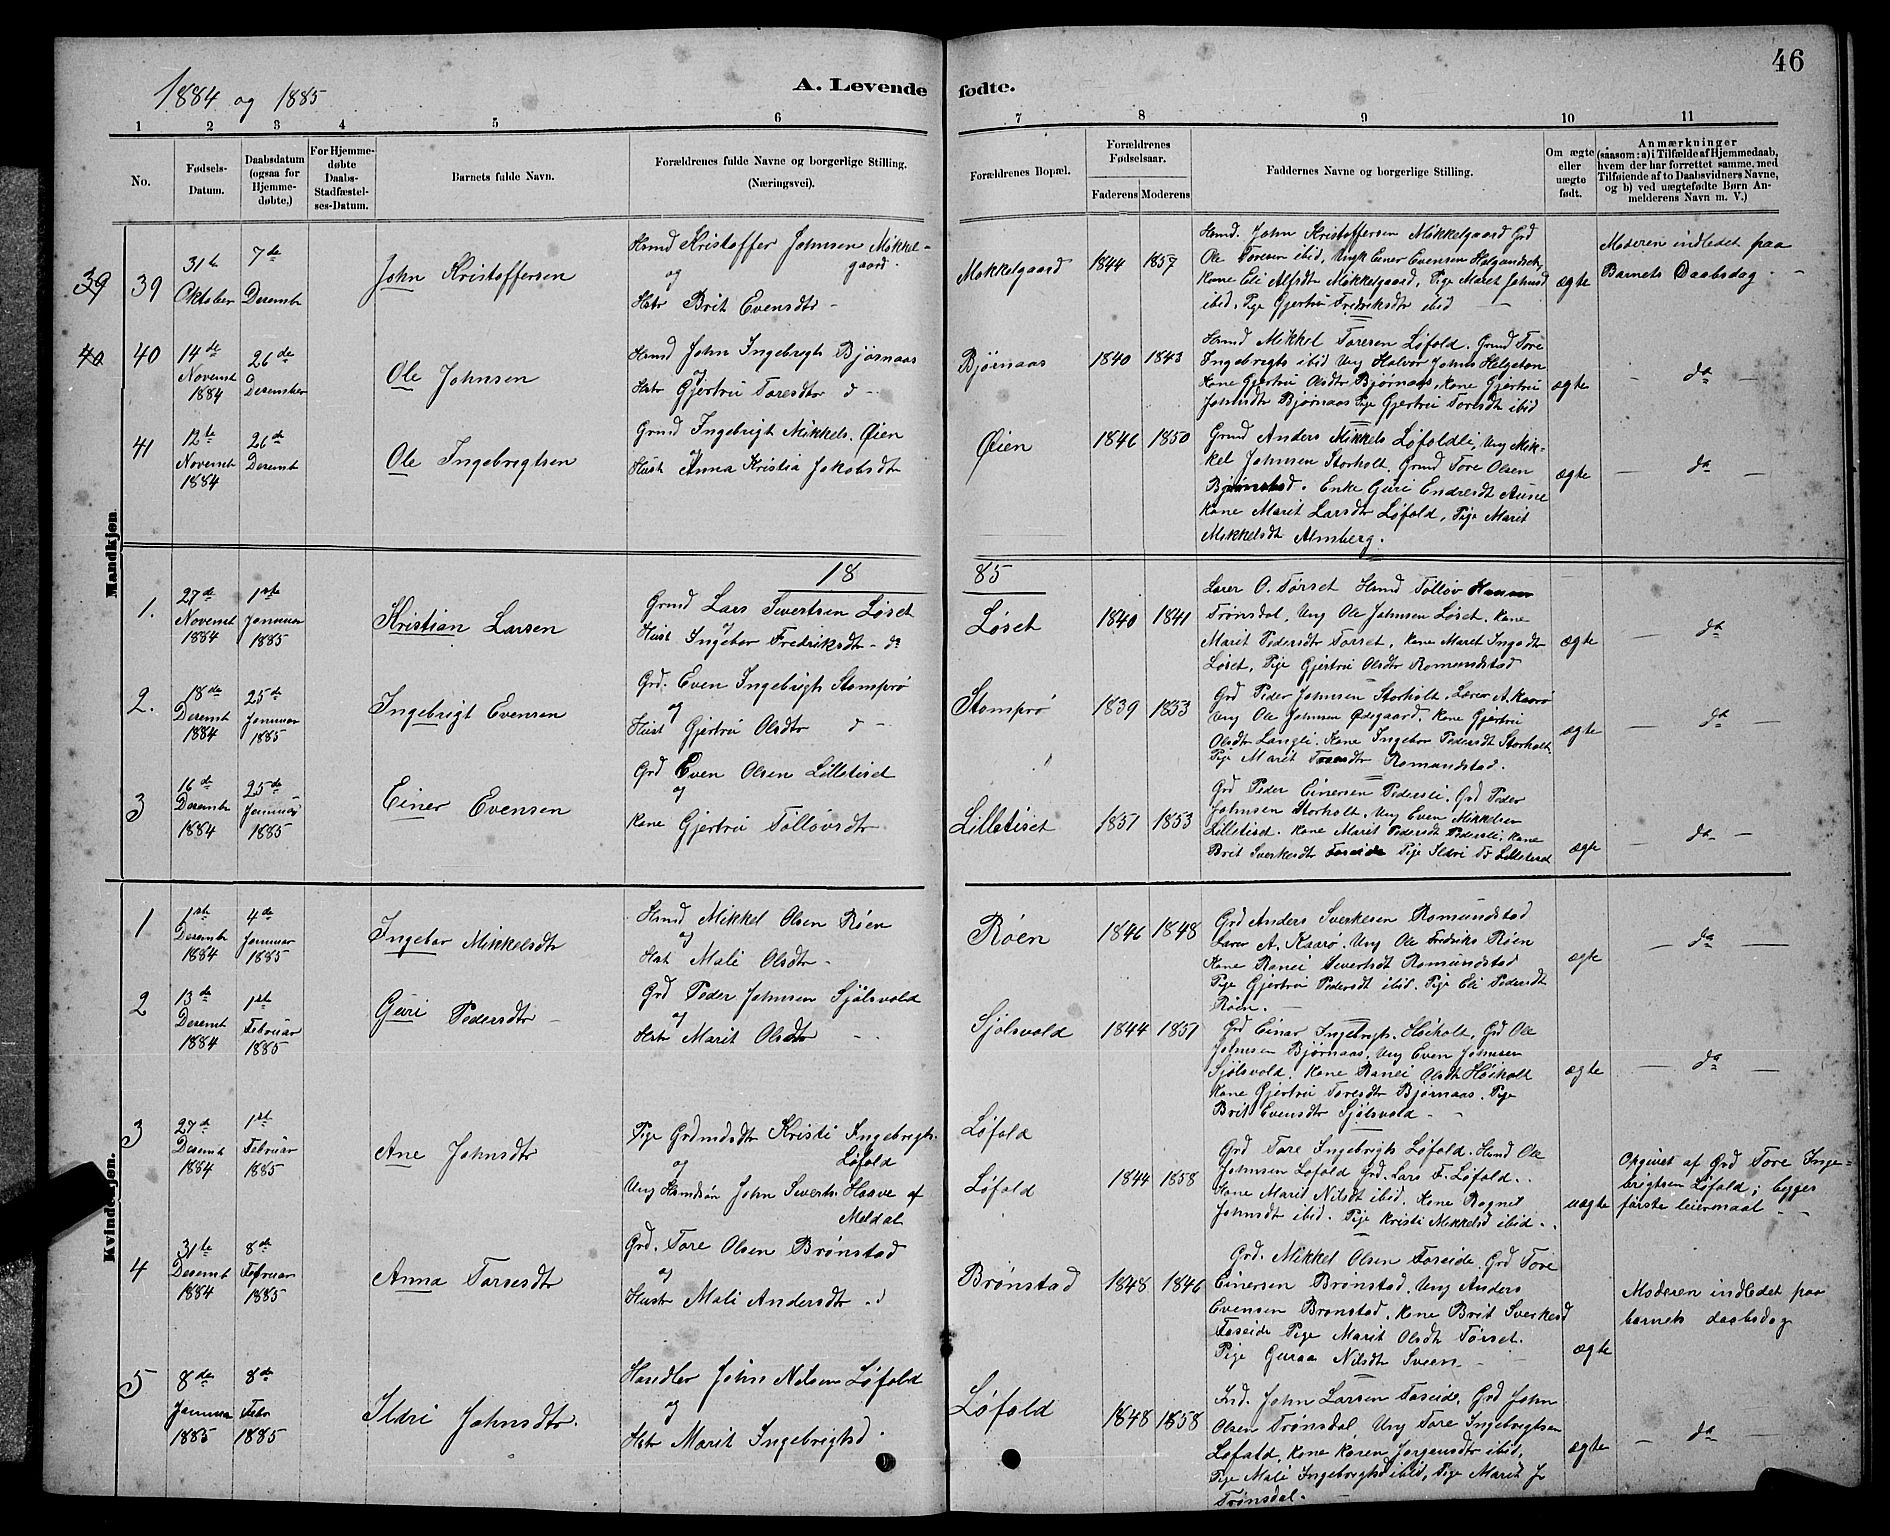 46
1884 og 1885
A. Levende fødte.
1 2 3 4 5 6 7 8 9 10 11
No.
Fødsels-
Datum.
Daabsdatum
(ogsaa for
Hjemme-
døbte,)
For Hjemme-
døbte
Daabs-
Stadfæstel-
ses-Datum.
Barnets fulde Navn.
Forældrenes fulde Navne og borgerlige Stilling.
(Næringsvei).
Forældrenes Bopæl.
Forældrenes
Fødselsaar.
Faderens Moderens
Faddernes Navne og borgerlige Stilling.
Om ægte
eller
uægte
født.
Anmærkninger
(saasom: a) i Tilfælde af Hjemmedaab,
hvem der har forrettet samme, med
Tilføiende af to Daabsvidners Navne,
og b) ved uægtefødte Børn An-
melderens Navn m. V.)
Mandkjøn.
39 39
31te
Oktober
7de
Desemb
John Kristoffersen
Hsmd Kristoffer Johnsen Mokkel-
gaard
og
Hstr Brit Evensdtr
Mokkelgaard
1844 1857
Hsmd. John Kristoffersen Mokkelgaard Grd
Ole Toresen ibid, Ungk Einer Evensen Helgandset,
Kone Eli Alfsdtr Mokkelgaard, Pige Marit Johnsd
ibid, Pige Gjertru Fredriksdtr ibid
ægte
Moderen indledet paa
Barnets Daabsdag.
40 40
14de
Novemb
1884
26de
Desember
Ole Johnsen
Hsmd John Ingebrigts Bjørnaas
og
Hstr Gjertru Toresdtr d
Bjørnaas
1840 1843
Hsmd Mikkel Toresen Løfold. Grmd Tore
Ingebrigts ibid Ung Halvor Johns Helgeton
Kone Gjertru Olsdtr Bjørnaas, Kone Gjertru
Johnsdtr Bjørnaas Pige Gjertru Toresdt ibid
ægte
– da –
41
12te
Novemb
1884
26de
Desemb
Ole Ingebrigtsen
Grmd Ingebrigt Mikkels. Øien
og
Hust Anna Kristia Jakobsdt
Øien
1846 1850
Grmd Anders Mikkels Løfoldli, Ung Mik-
kel Johnsen Storholt. Grmd Tore Olsen
Bjørnstad. Enke Guri Endresdt Aune
Kone Marit Larsdtr Løfold, Pige Marit
Mikkelsdt Almberg.
ægte
– da –
18 85
1.
27de
Novemb
1884
1ste
Januar
1885
Kristian Larsen
Grmd Lars Sivertsen Løset
og
Hust Ingebor Fredriksdtr – do
Løset
1840 1841
Lærer O. Tørset Hsmd Tolløv
Trønsdal, Ung Ole Johnsen Løset. Kone
Marit Pedersdtr Torset, Kone Maret Ings dtr
Løset, Pige Gjertru Olsdtr Romundstad
ægte
– da
2.
18de
Desemb
1884
25de
Januar
1885
Ingebrigt Evensen
Grd. Even Ingebrigts Stomprø
og
Hust Gjertru Olsdtr d –
Stomprø
1839 1853
Grd Peder Johnsen Storholt. Lærer A. Kaarø
Ung Ole Johnsen Ødegaard. Kone Gjertru
Olsdtr Langli. Kone Ingebor Pedersdt Storholt
Pige Marit Toresdtr Romundstad.
ægte
– da –
3
16de
Desemb
1884
25de
Januar
1885
Einer Evensen
Grd Even Olsen Lilletiset
og
Kone Gjertru Tolløvsdtr
Lilletiset
1837 1853
Grd Peder Einersen Pedersli. Grd Peder
Johnsen Storholt. Ung Even Mikkelsen
Lilletisd. Kone Marit Pedersdt Pedersli, Kone
Brit Sverkesdtr Foseide Pige Ildri Lilletisd
ægte
– da –
Kvindekjøn.
1
1ste
Desemb
1884
4de
Januar
1885
Ingebor Mikkelsdtr
Hsmd Mikkel Olsen Røen
og
Hst Mali Olsdtr –
Røen
1846 1848
Grd Anders Sverkesen Romundstad
Lærer A. Kaarø. Ung Ole Fredriks Røen
Kone Ranei Sivertsdt Romundstad
Pige Gjertru Pedersdt ibid. Pige Eli Pedersdt
Røen. –
ægte
– da –
2
13de
Desemb
1884
1ste
Februar
1885
Guri Pedersdtr –
Grd Peder Johnsen Sjølsvold
og
Hstr Marit Olsdtr – –
Sjølsvold
1844 1851
Grd Einar Ingebrigts. Høiholt, Grd Ole
Johnsen Bjørnaas, Ung Even Johnsen
Sjølsvold. Kone Ranei Olsdt Høiholt
Kone Gjertru Toresdtr Bjørnaas. Pige
Brit Evensdtr Sjølsvold –
ægte
– da –
3
27de
Desemb
1884
1ste
Februar
1885
Ane Johnsdtr
Pige Grdmdsdtr Kristi Ingebrigts.
Løfold
og
Ung Hsmdsøn John Siverts. Hosve af
Meldal
Løfold
Løfold
1844 1858
Grd Tore Ingebrigts Løfold. Hsmd Ole
Johnsen Løfold Grd. Lars F. Løfold.
Kone Marit Nilsdt ibid. Kone Ragnil
Johnsdt ibid. Pige Kristi Mikkelsd ibid.
uægte
Opgivet af Grd Tore Inge-
brigtsen Løfold; begges
første leiermaal
4
31te
Desemb
1884
8de
Februar
1885
Anna Toresdtr
Grd. Tore Olsen Brønstad
og
Hustr Mali Andersdtr d
Brønstad
1848 1846
Grd. Mikkel Olsen Foseide. Grd Tore
Einersen Brønstad, Ung Anders
Evensen Brønstad, Kone Brit Sverkesd
Foseide Pige Marit Olsdt Tørset.
Pige Guraa Nilsdtr Sveen –
ægte
Moderen indledet paa
barnets daabsdag
5
8de
Januar
1885
8de
Febr
1885
Ildri Johnsdtr.
Handler John Nilsen Løfold
og
Hstr Marit Ingebrigtsd
Løfold
1848 1858
John Larsen Foseide, Grd John
Olsen Trønsdal, Ung Tore Ingebrigtsen
Løfold, Kone Karen Jørgensdtr ibid,
Pige Mali Ingebrigtsd ibid, Pige Marit J
Trønsdal. –
ægte
– da –